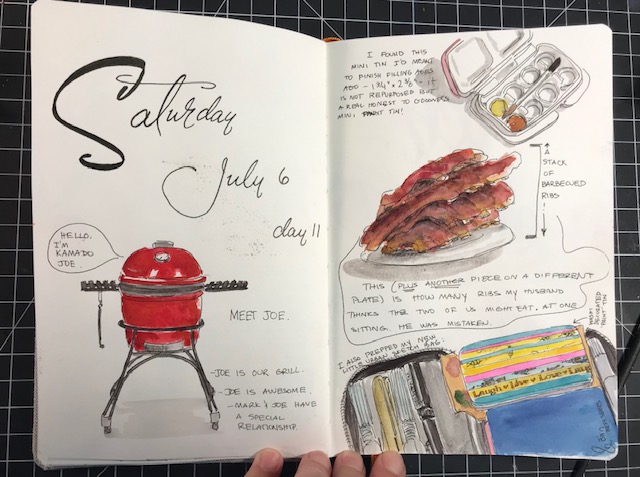 Saturday
July 6
day 11
HELLO.
I'M
KAMADO
JOE.
MEET JOE.
-JOE IS OUR GRILL.
-JOE IS AWESOME.
-MARK & JOE HAVE
A SPECIAL
RELATIONSHIP.
I FOUND THIS
MINI TIN I'D MEANT
TO FINISH FILLING AGES
AGO - 1 3/4" x 2 3/8" - it
IS NOT REPURPOSED BUT
A REAL HONEST TO GOODNESS
MINI PAINT TIN!
A
STACK
OF
BARBECUED
RIBS
THIS (PLUS ANOTHER PIECE ON A DIFFERENT
PLATE) IS HOW MANY RIBS MY HUSBAND
THINKS THE TWO OF US MIGHT EAT. AT ONE
SITTING. HE WAS MISTAKEN.
I ALSO PREPPED MY NEW
LITTLE URBAN SKETCH BAG:
WASHI
DECORATED
PAINT TIN
Laugh ♥ Live ♥ Love ♥ Laugh